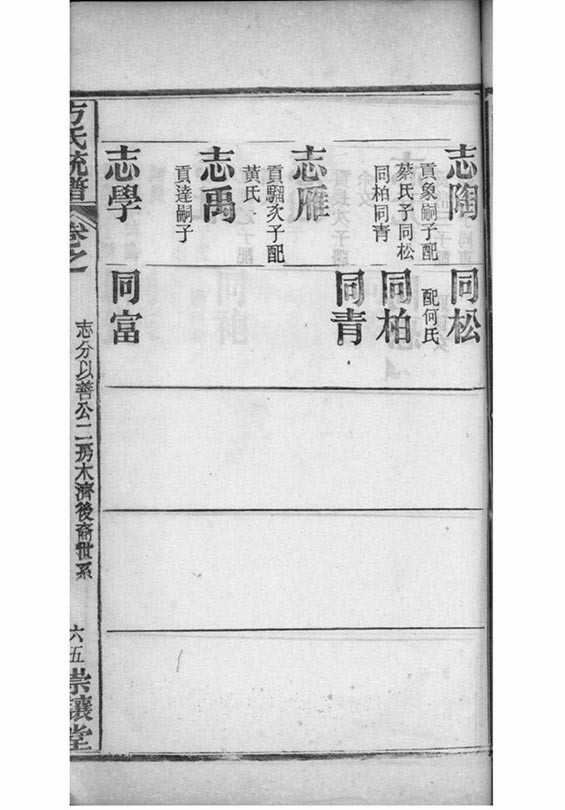 志陶
貢象嗣子配
蔡氏子同松
同柏同青
志雁
貢騮次子配
黄氏
志禹
貢達嗣子
志學
同松
配何氏
同柏
同青
同富
方氏統譜
卷之
志分以善公二房木濟後裔世系
六五
崇讓堂